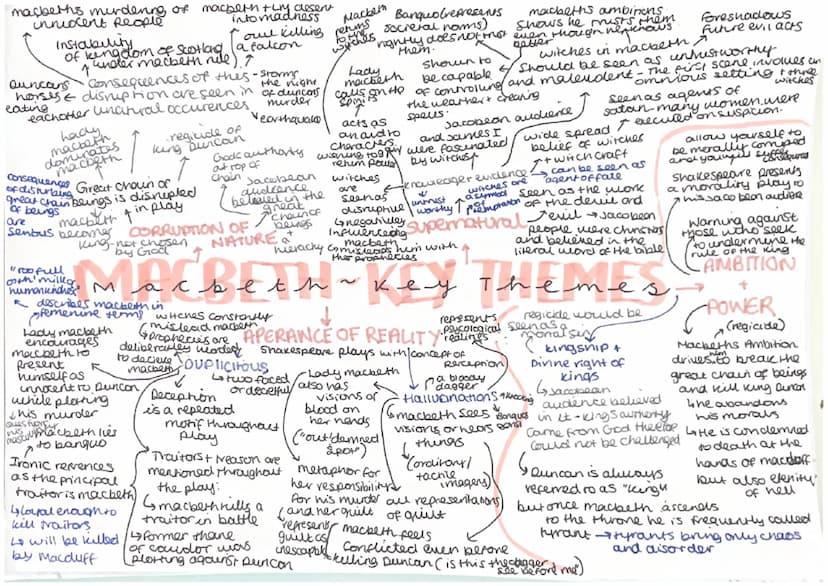 macbeths murdering of
innocent people
macbeth they descent
into madness
Instability
of kingdom of scotland
under macbeth rule
owl killing
a falcon
Duncans
horses
eating
eachother
Consequences of this
disruption are seen in
unatural occurences
- Storms
the night
of duncans
murder
earthquake
Lady
macbeth
dominates
macbeth
regicide of
King Duncan
Gods authority
at top of
chain
Jacobean
audience
believed in the
great
chain of
beings
+
a hierachy
consequences
of disturbing
great chain
of beings
are
serious
Great chain of
beings is disrupted
in play
macbeth
becomes
King - not chosen
by God
CORRUPTION OF
NATURE
Macbeth
returns
to the
witches
Lady
macbeth
calls on the
spirits
acts as
an audio
characters
return
witches
are
seen as
disruptive
+ negatively
influencing
macbeth
misleads him with
their prophecies
Banquo (represents
societal norms)
rightly does not trust
them
shown to
be capable
of controlling
the weather + creating
spells
Jacobean audience
and James I
were fascinated
by witches
Knowledge + evidence
untrust
worthy
witches are
a symbol
of temptation
SUPERNATURAL
macbeths ambitions
shows he trusts them
even though he knows
better
Foreshadows
future evil acts
witches in macbeth
Should be seen as untrustworthy
and malevolent - The first scene involves an
ominous setting + three
witches
seen as agents of
satan - many women were
executed on suspicion
wide spread
belief of witches
+ witchcraft
can be seen as
agent of fate
seen as the work
of the devil and
evil → Jacobean
people were christians
and believed in the
literal word of the bible
allow yourself to
be morally corrupted
and you will suffer
Shakespeare presents
a morality play to
his Jacobean audience
Warning against
those who seek
to undermine the
rule of the king
AMBITION
+
POWER
MACBETH - KEY THEMES
Macbeth ~ Key Themes
"too full
o'th' milk of
human kindness"
describes macbeth in
femenine terms
Lady macbeth
encourages
macbeth to
present
himself as
innocent to Duncan
while plotting
his murder
macbeth lies
to banquo
Ironic refrences
as the principal
traitor is macbeth
↳ Loyal enough to
kill traitors
↳ will be killed
by Macduff
witches constantly
mislead macbeth
↳ Prophecies are
deliberately worded
to decieve
macbeth
DUPLICITOUS
↳ two faced
or deceitful
Deception
is a repeated
motif throughout
play
Traitors + treason are
mentioned throughout
the play:
↳ macbeth kills a
traitor in battle
↳ former thane
of cawdor was
plotting against Duncan
APERANCE OF REALITY
Shakespeare plays with concept of
perception
Lady macbeth
also has
visions of
blood on
her hands
("out damned
spot")
metaphor for
her responsibility
for his murder
and her guilt
represents
guilt as
inescapable
represents
psycological
realings
a bloody
dagger
Hallucinations
macbeth sees
visions or hears
things
Banquo
(auditory/
tactile
imagery)
all representations
of guilt
macbeth feels
conflicted even before
killing Duncan (is this the dagger
see before me)
regicide would be
seen as a
mortal sin
Kingship +
Divine right of
kings
↳ Jacobean
audience believed
in it - kings authority
came from God therefore
could not be challenged
Duncan is always
referred to as "king"
but once macbeth ascends
to the throne he is frequently called
tyrant → tyrants bring only chaos
and disorder
(regicide)
Macbeths Ambition
drives him to break the
great chain of beings
and kill King Duncan
↳ he abandons
his morals
↳ He is condemned
to death at the
hands of macduff
but also eternity
of hell